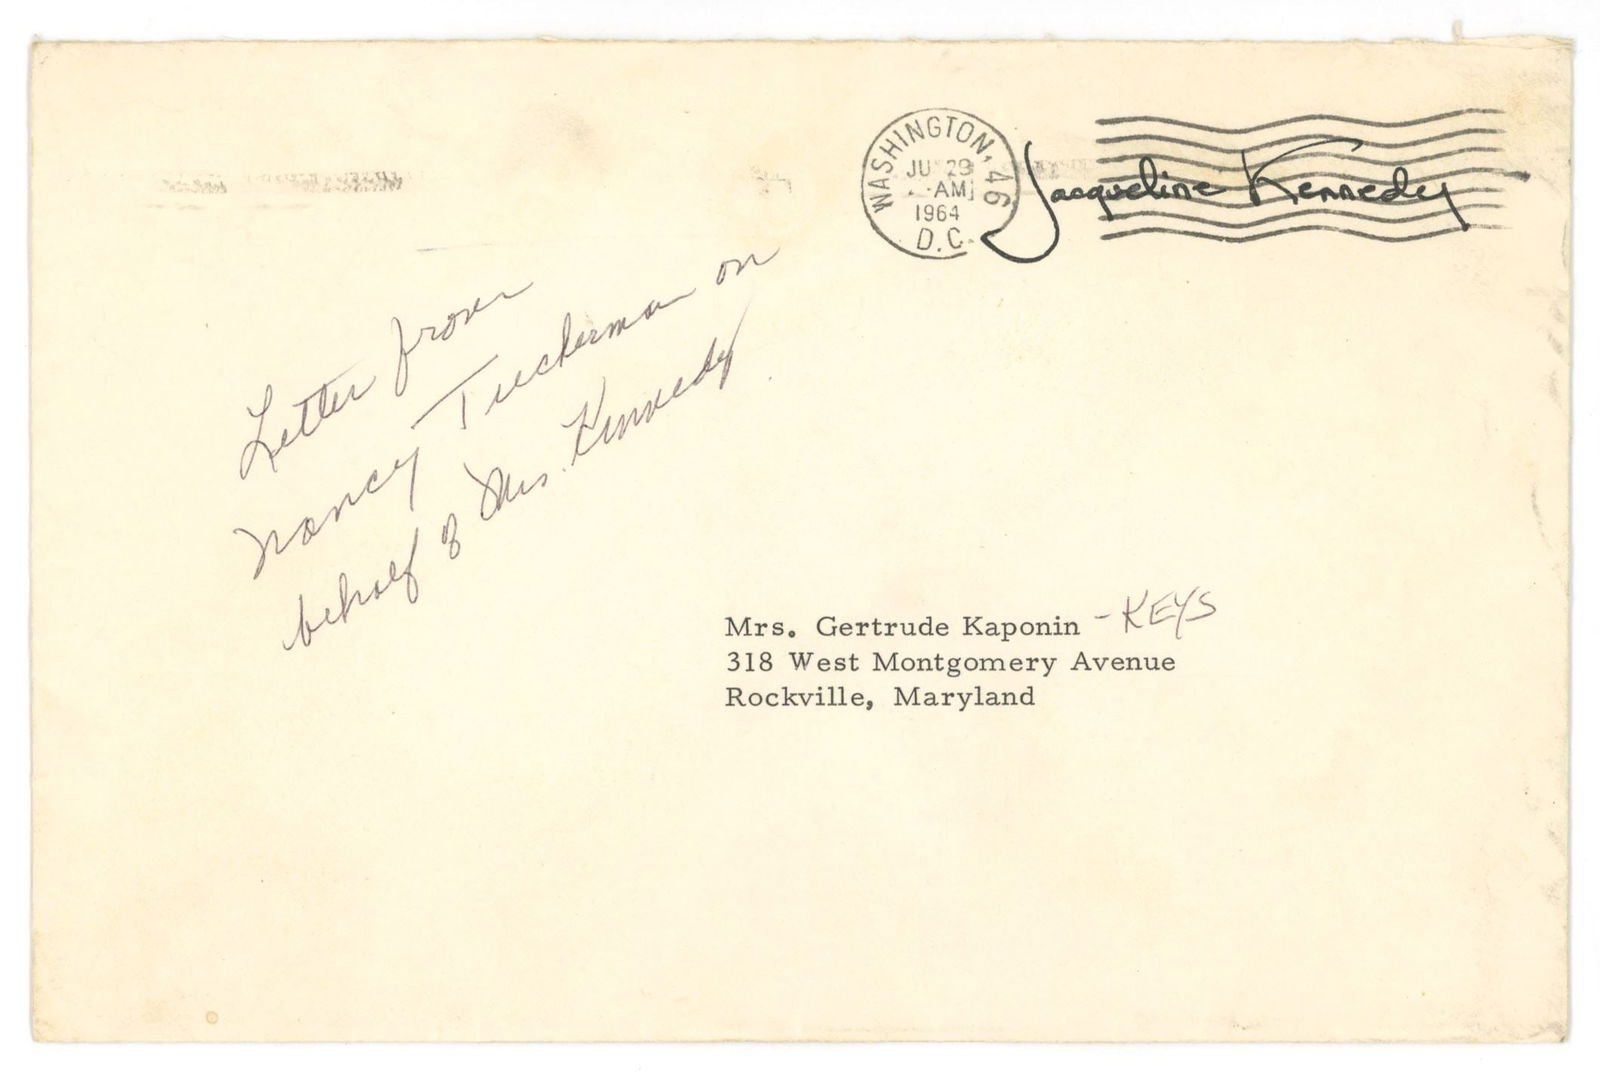 WASHINGTON, 46
JU 29
AM
1964
D.C.
Jacqueline Kennedy
Letter from
Nancy Tuckerman on
behalf of Mrs. Kennedy
Mrs. Gertrude Kaponin - KEYS
318 West Montgomery Avenue
Rockville, Maryland